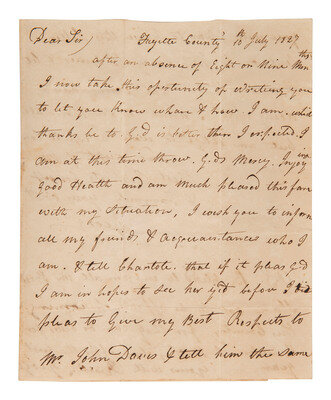 Dear Sir) Fayette County 10th July 1827
after an absence of Eight or Nine Months
I now take this opertunity of writing you
to let you Know whare & how I am. which
thanks be to God is better then I expected. I
am at this time throw Gods Mercy Injoying
Good Health and am Much pleased this far
with my Situation, I wish you to inform
all my friends & acquaintances who I
am. & tell Charlote. that if it pleas God
I am in hopes to see her yet before I
pleas to Give my Best Respects to
Mr. John Davis & tell him the same